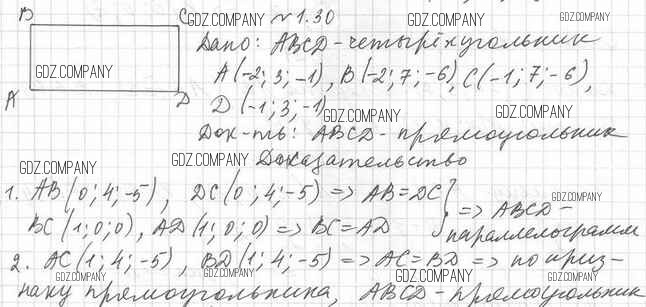 B C GDZ.COMPANY №1.30 GDZ.COMPANY
Дано: ABCD - четырёхугольник
GDZ.COMPANY A(-2; 3; -1), B(-2; 7; -6), C(-1; 7; -6), GDZ.COMPANY
A D D(-1; 3; -1) GDZ.COMPANY
GDZ.COMPANY
Док-ть: ABCD - прямоугольник
GDZ.COMPANY GDZ.COMPANY Доказательство
1. AB(0; 4; -5), DC(0; 4; -5) => AB = DC } GDZ.COMPANY
BC(1; 0; 0), AD(1; 0; 0) => BC = AD } => ABCD -
параллелограмм
2. AC(1; 4; -5), BD(1; 4; -5) => AC = BD => по приз-
GDZ.COMPANY GDZ.COMPANY GDZ.COMPANY GDZ.COMPANY
наку прямоугольника, ABCD - прямоугольник